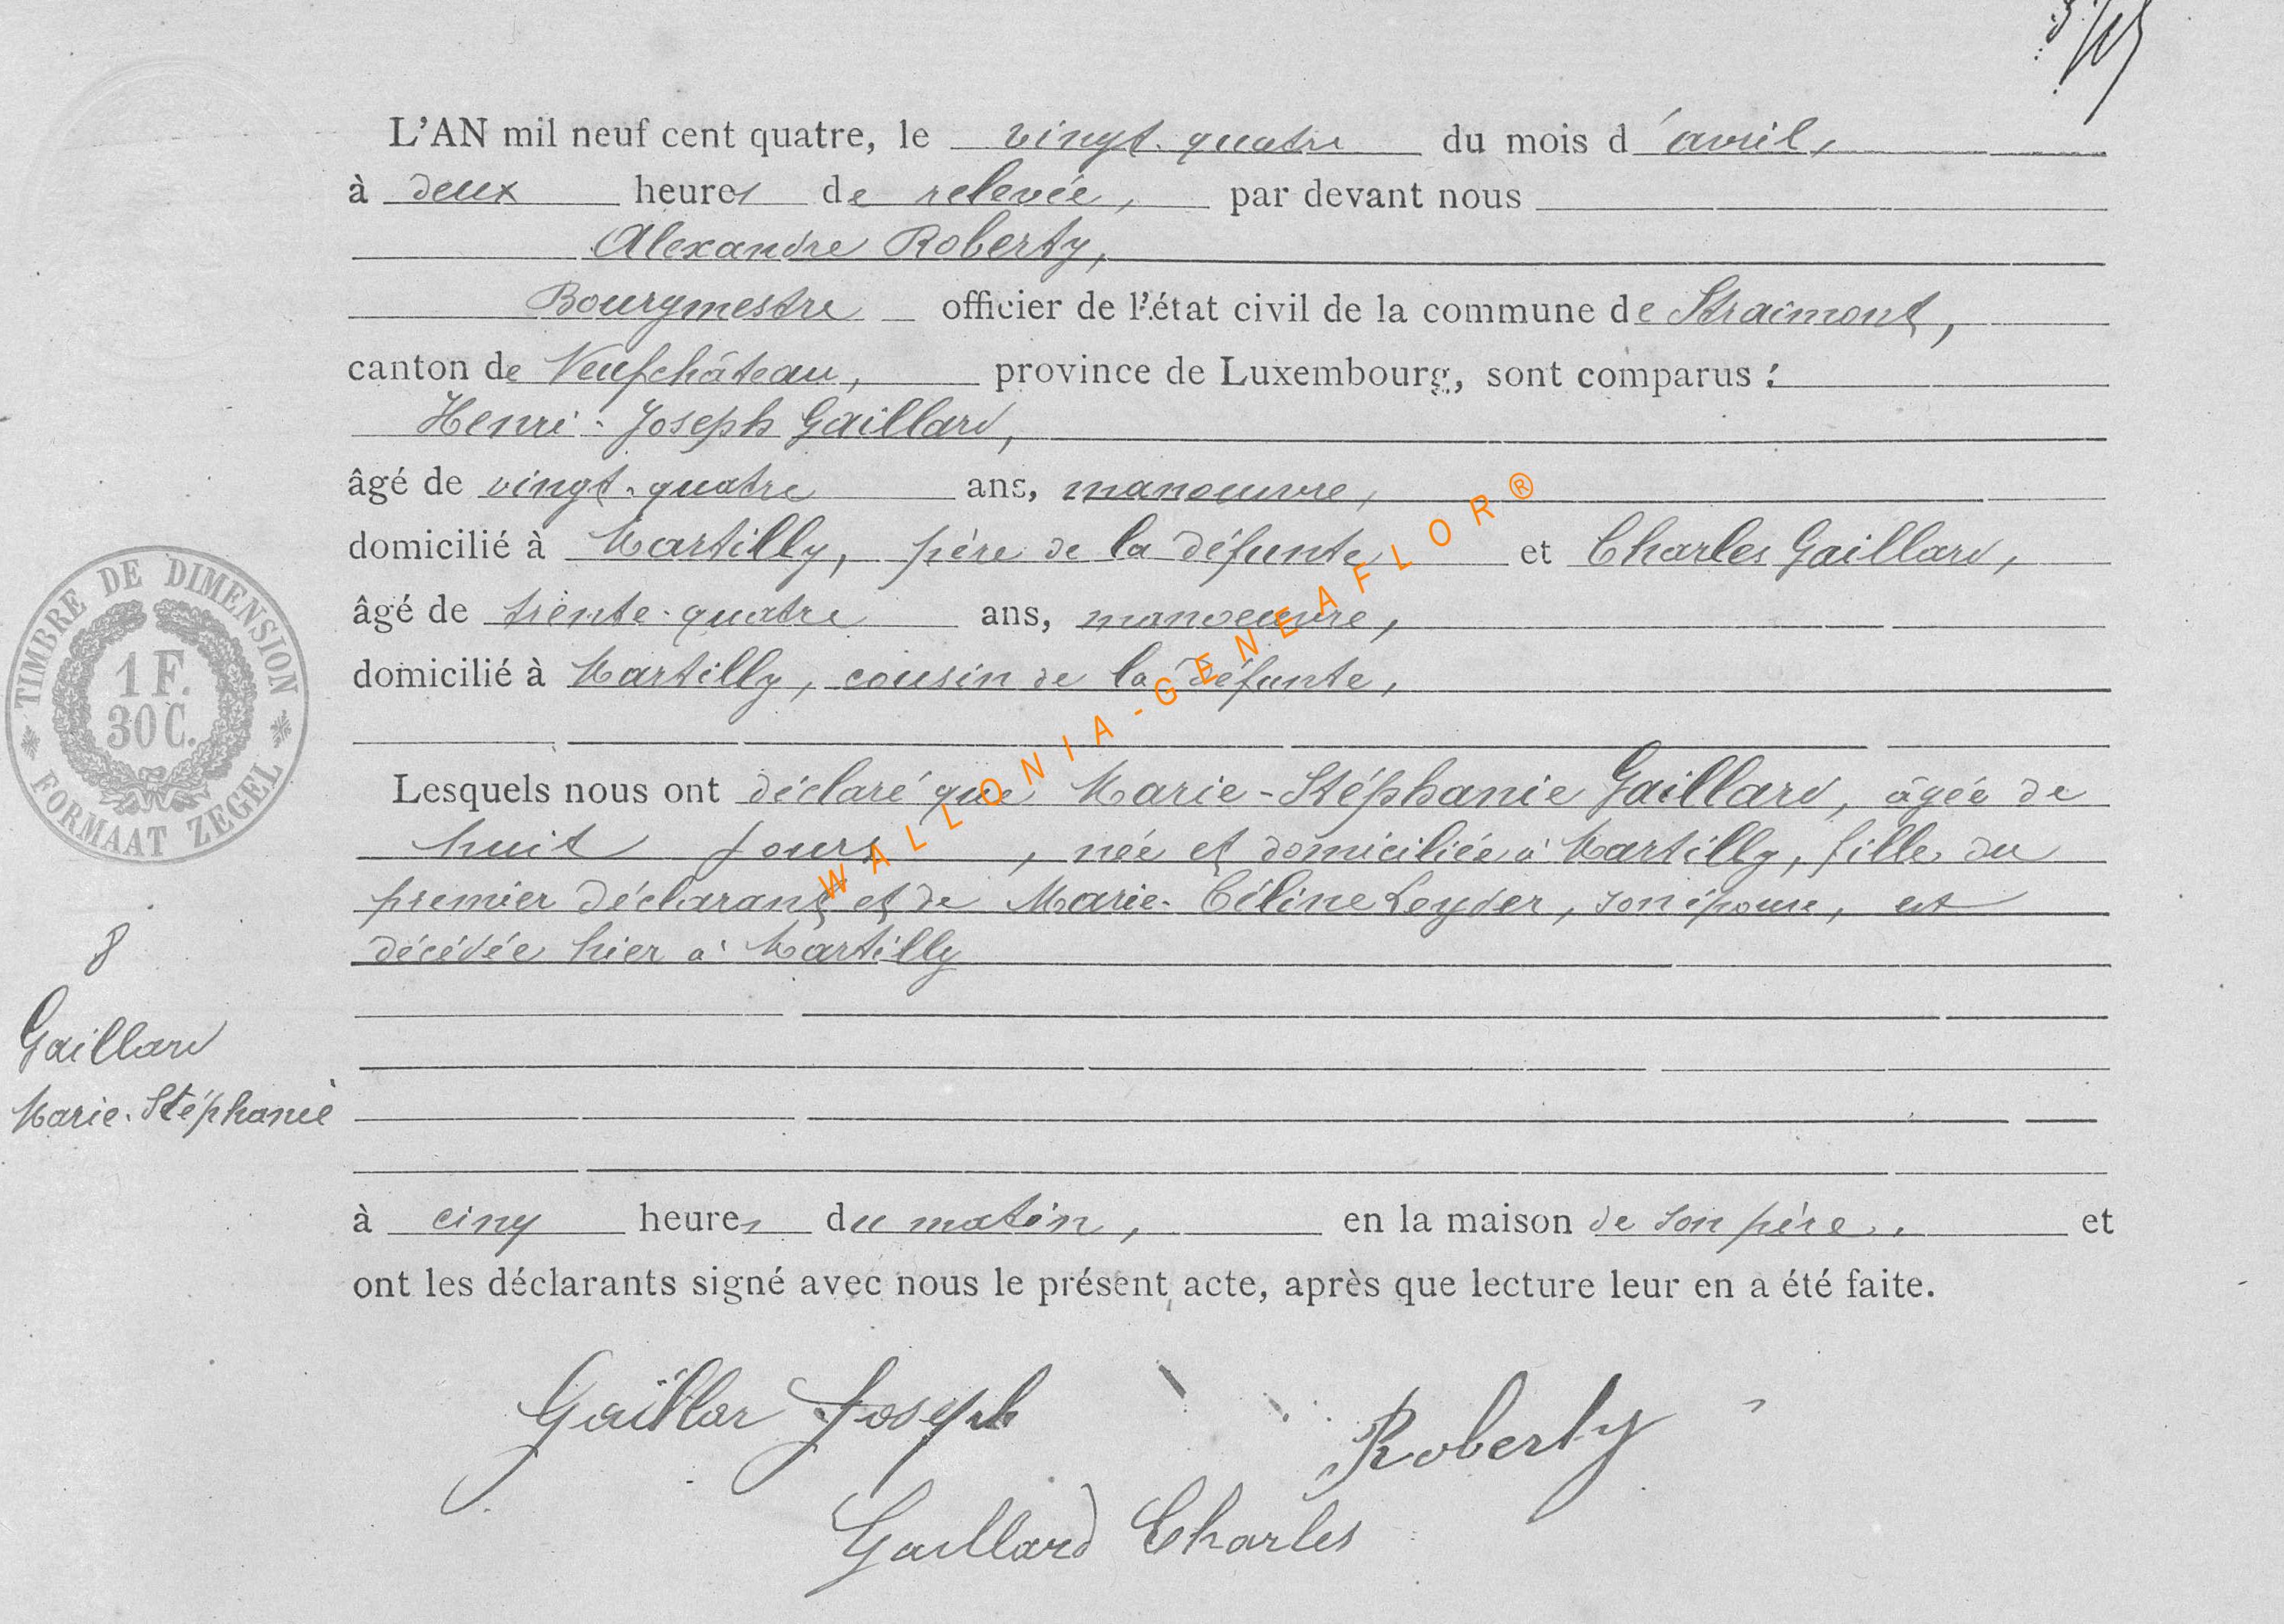 L'AN mil neuf cent quatre, le vingt-quatre du mois d'avril,
à deux heures de relevée, par devant nous
Alexandre Roberty,
Bourgmestre officier de l'état civil de la commune de Straimont,
canton de Neufchâteau, province de Luxembourg, sont comparus :
Henri-Joseph Gaillard,
âgé de vingt-quatre ans, manoeuvre,
domicilié à Martilly, père de la défunte et Charles Gaillard,
âgé de trente-quatre ans, manoeuvre,
domicilié à Martilly, cousin de la défunte,
Lesquels nous ont déclaré que Marie-Stéphanie Gaillard, âgée de
huit jours, née et domiciliée à Martilly, fille du
premier déclarant et de Marie-Céline Leyder, son épouse, est
décédée hier à Martilly
à cinq heures du matin, en la maison de son père, et
ont les déclarants signé avec nous le présent acte, après que lecture leur en a été faite.
Gaillar Joseph
Roberty
Gaillard Charles
TIMBRE DE DIMENSION
1 F.
30 C.
FORMAAT ZEGEL
8
Gaillard
Marie-Stéphanie
WALLONIA-GENEAFLOR®